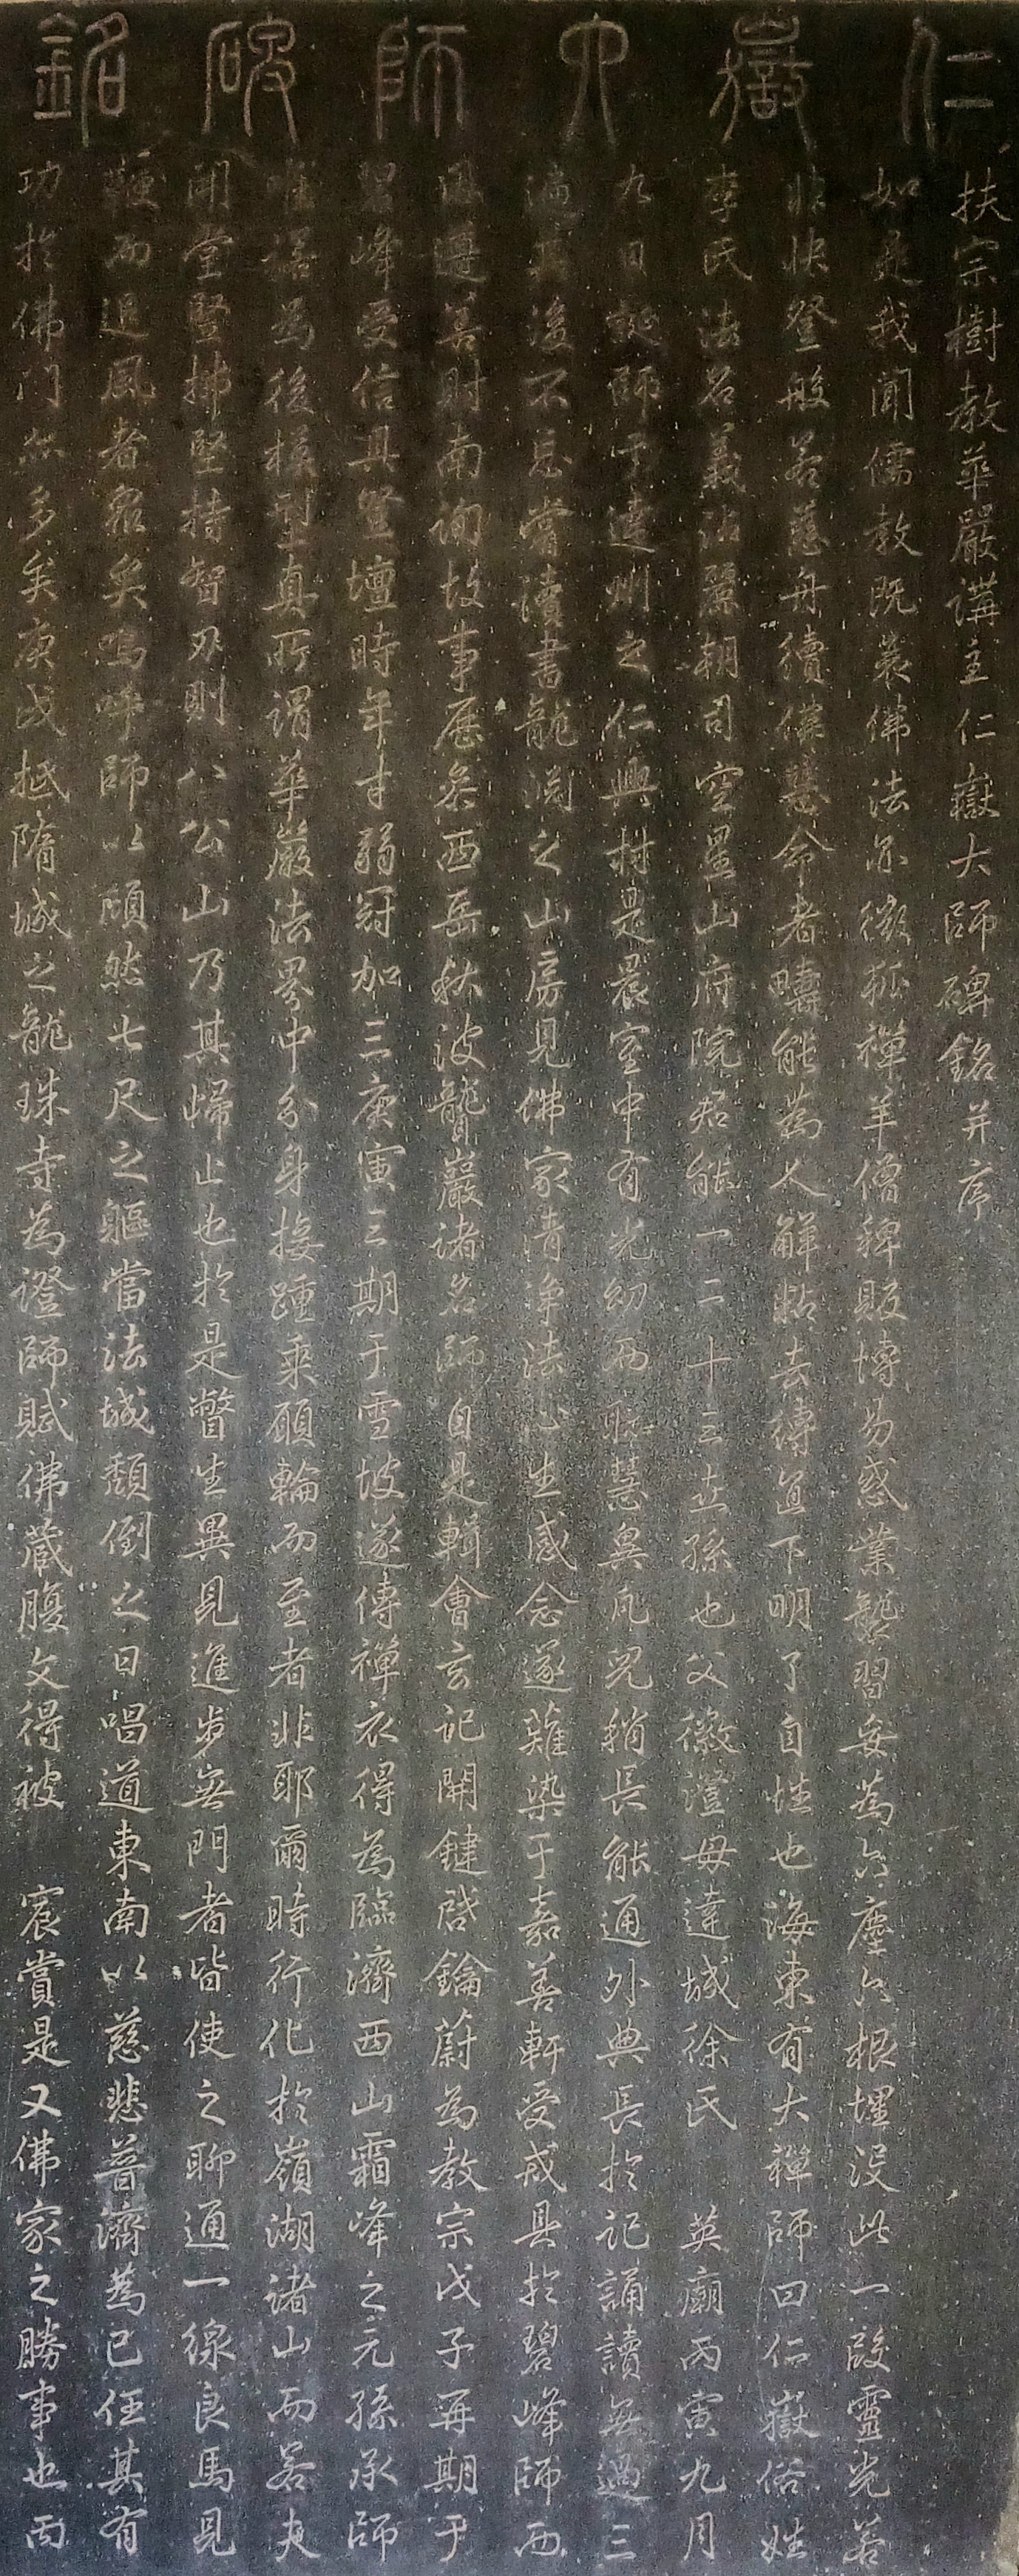 仁嶽大師碑銘
扶宗樹教華嚴講主仁嶽大師碑銘并序
如是我聞儒教既衰佛法亦微狐禪羊僧稗販博易惑業熟習妄為六塵六根埋沒此一段靈光若
非快登般若慈舟續佛慧命者疇能為人解黏去縛直下明了自性也海東有大禪師曰仁嶽俗姓
李氏法名義沾麗朝司空星山府院君能一二十三世孫也父徽澄母達城徐氏 英廟丙寅九月
九日誕師于達州之仁興村是晨室中有光幼而聰慧異凡兒稍長能通外典長於記誦讀無過三
遍其後不忘嘗讀書龍淵之山房見佛家清淨法心生感念遂薙染于嘉善軒受戒具於碧峰師西
遇遵善財南詢故事歷叅西岳秋波聾巖諸名師自是輯會玄記開鍵啓鑰蔚為教宗戊子再期于
碧峰受信具登壇時年才弱冠加三庚寅三期于雪坡遂傳禪衣得為臨濟西山霜峰之元孫承師
唯諾為後模型真所謂華嚴法界中分身接踵乘願輪而至者非耶爾時行化於嶺湖諸山而若夫
開堂竪拂堅持智刃則八公山乃其歸止也於是瞥生異見進步無門者皆使之聊通一線良馬見
鞭而追風者衆矣嗚呼師以頎然七尺之軀當法城頹倒之日唱道東南以慈悲普濟為己任其有
功於佛門亦多矣庚戌抵隋城之龍珠寺為證師賦佛藏腹文得被 宸賞是又佛家之勝事也丙